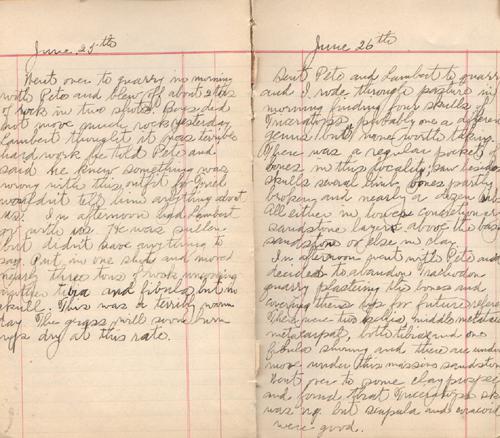 June 25th
Went over to quarry in morning
with Pete and blew off about 2 tons
of rock in two shots. Boys did
not move much rock yesterday.
Lambert thought it was terrible
hard work he told Pete and
said he knew something was
wrong with this outfit for
wouldn't tell him anything about
us. In afternoon had Lambert
with us. He was sullen
but didn't have anything to
say. Put in one shot and moved
nearly three tons of rock uncovering
another tibia and fibula, but no
skull. This was a terribly warm
day. The grass will soon burn
up dry at this rate.
June 26th
Sent Pete and Lambert to quarry
and I rode through pasture in
morning finding four skulls of
Triceratops, probably one a different
genus but none worth taking.
There was a regular pocket of
bones in this locality; saw besides
skulls several limb bones partly
broken and nearly a dozen
All either in loose concretionary
sandstone layers above the basal
sandstone or else in clay.
In afternoon went with Pete and
decided to abandon Trachodon
quarry plastering the bones and
covering them up for future
There are two middle metatarsals
metacarpal, both tibia and one
fibula showing and there are undoubtedly
more under this massive sandstone
Went over to some clay prospects
and found that Triceratops
was n.g. but scapula and coracoid
were good.